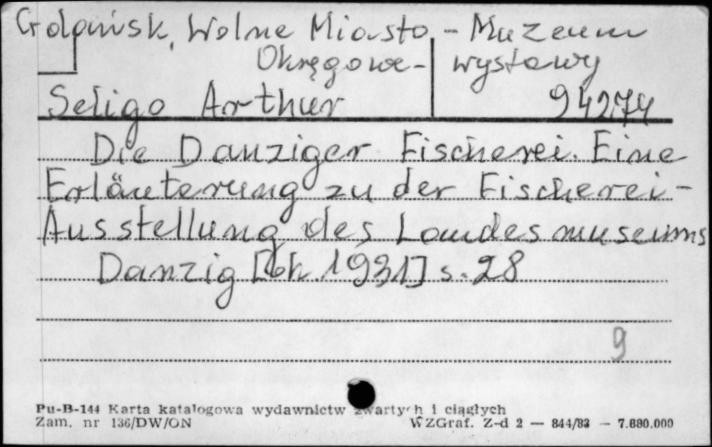 Gdańsk, Wolne Miasto - Muzeum
Okręgowe - wystawy
Seligo Arthur 94274
Die Danziger Fischerei. Eine
Erläuterung zu der Fischerei-
Ausstellung des Landesmuseums
Danzig [ok. 1931] s. 28
9
Pu-B-144 Karta katalogowa wydawnictw zwartych i ciągłych
Zam. nr 136/DW/ON WZGraf. Z-d 2 — 844/83 — 7.680.000